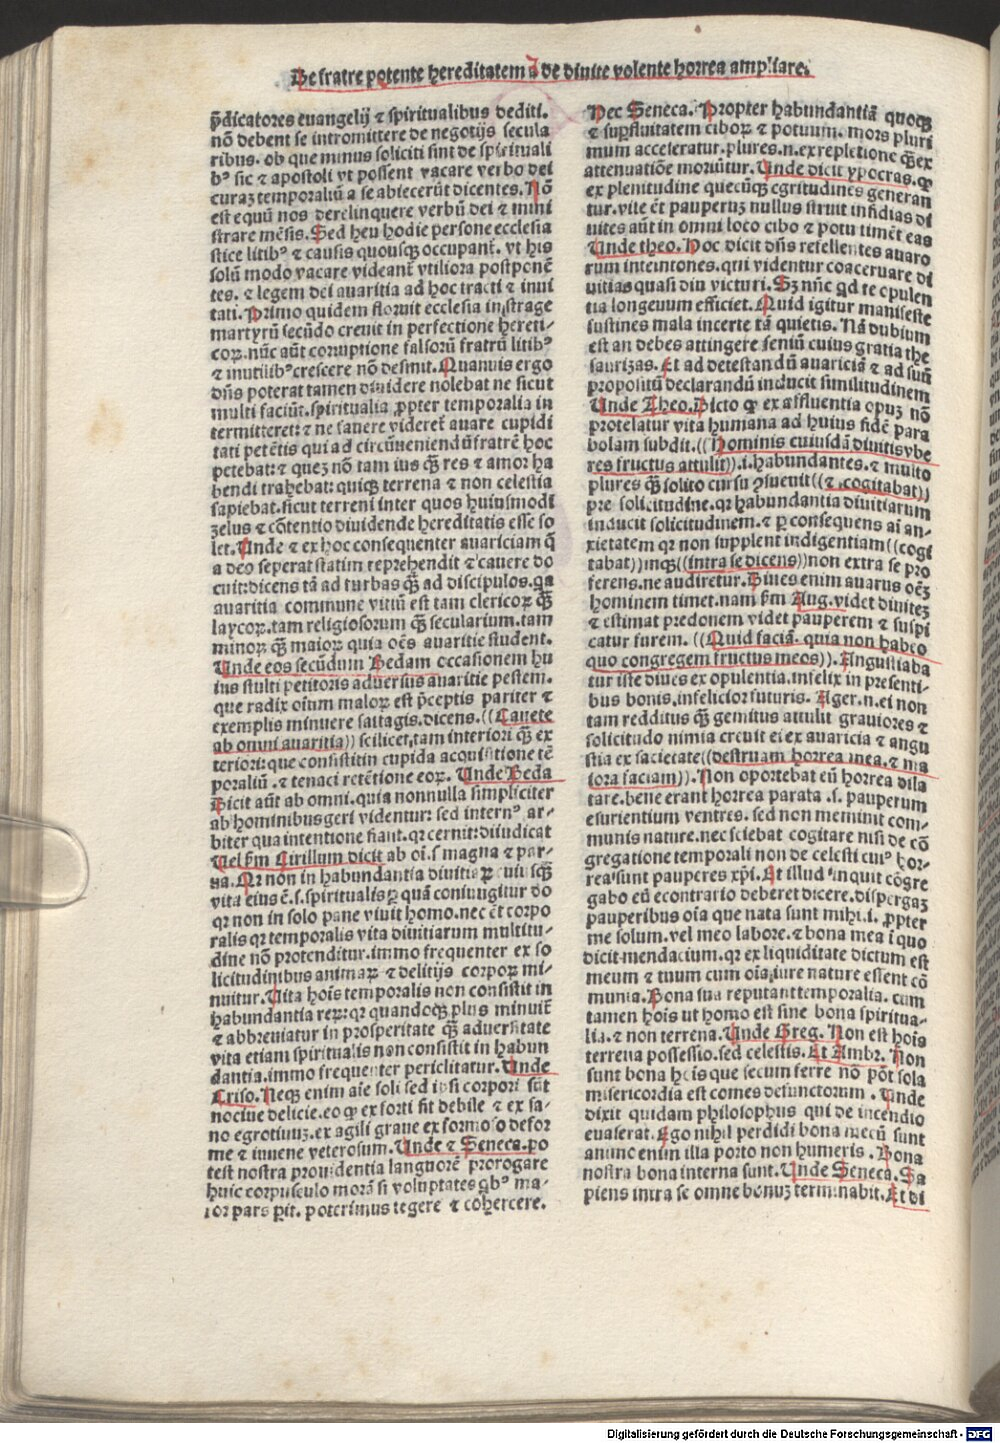 De fratre potente hereditatem ⁊ de diuite volente horrea ampliare.
p̄dicatores euangelij ⁊ spiritualibus dediti.
nō debent se intromittere de negotijs secula
ribus. ob que minus soliciti sint de spirituali
bꝰ sic ⁊ apostoli vt possent vacare verbo dei
curaꝫ temporaliū a se abiecerūt dicentes. Nō
est equū nos derelinquere verbū dei ⁊ mini
strare mēsis. Sed heu hodie persone ecclesia
stice litibꝰ ⁊ causis quousqꝫ occupant̄. vt his
solū modo vacare videant̄ vtiliora postponē
tes. ⁊ legem dei auaritia ad hoc tracti ⁊ inui
tati. Primo quidem floruit ecclesia in strage
martyrū secūdo creuit in perfectione hereti-
coꝝ. nūc aūt corruptione falsorū fratrū litibꝰ
⁊ inutilibꝰ crescere nō desinit. Quanuis ergo
dn̄s poterat tamen diuidere nolebat ne sicut
multi faciūt. spiritualia ꝓpter temporalia in
termitteret: ⁊ ne fauere videret̄ auare cupidi
tati petētis qui ad circūueniendū fratrē hoc
petebat: ⁊ queꝫ nō tam ius qꝫ res ⁊ amor ha
bendi trahebat: quiqꝫ terrena ⁊ non celestia
sapiebat. sicut terreni inter quos huiusmodi
zelus ⁊ cōtentio diuidende hereditatis esse so
let. Unde ⁊ ex hoc consequenter auariciam q̄
a deo seperat statim reprehendit ⁊ cauere do
cuit: dicens tā ad turbas qꝫ ad discipulos. qa
auaritia commune vitiū est tam clericoꝝ qꝫ
laycoꝝ. tam religiosorum qꝫ secularium. tam
minoꝝ qꝫ maioꝝ quia oēs auaritie student.
Unde eos secūdum Bedam occasionem hu
ius stulti petitoris aduersus auaritie pestem.
que radix oīum maloꝝ est p̄ceptis pariter ⁊
exemplis minuere satagis. dicens. ((Cauete
ab omni auaritia)) scilicet, tam interiori qꝫ ex
teriori: que consistit in cupida acquisitione tē
poraliū. ⁊ tenaci retētione eoꝝ. Unde Beda
Dicit aūt ab omni. quia nonnulla simpliciter
ab hominibus geri videntur: sed internꝰ ar-
biter qua intentione fiant. qr cernit: diiudicat
Uel ẜm Cirillum dicit ab oī. s magna ⁊ par-
ua. Qr non in habundantia diuitiaꝝ cuiusqꝫ
vita eius ē. s. spiritualis ꝑ quā coniungitur do
qr non in solo pane viuit homo. nec ēt corpo
ralis qr temporalis vita diuitiarum multitu-
dine nō protenditur. immo frequenter ex so
licitudinibus animaꝝ ⁊ delitijs corpoꝝ mi-
nuitur. Uita hoīs temporalis non consistit in
habundantia reꝝ: qr quandoqꝫ plus minuit̄
⁊ abbreuiatur in prosperitate qꝫ aduersitate
vita etiam spiritualis non consistit in habun
dantia. immo frequenter periclitatur. Unde
Criso. Neqꝫ enim aīe soli sed ipsi corpori sūt
nociue delicie. eo qꝙ ex forti fit debile ⁊ ex sa-
no egrotiuuꝫ. ex agili graue ex formoso defor
me ⁊ iuuene veterosum. Unde ⁊ Seneca. po
test nostra prouidentia languorē prorogare
huic corpusculo morā si voluptates qbꝰ ma-
ior pars ꝑit. poterimus regere ⁊ cohercere.
Hec Seneca. Propter habundantiā quoqꝫ
⁊ suꝑfluitatem ciboꝝ ⁊ potuum. mors pluri
mum acceleratur. plures. n. ex repletione qꝫ ex
attenuatiōe moriūtur. Unde dicit ypocras. qꝙ
ex plenitudine quecūqꝫ egritudines generan
tur. vite ēt pauperuꝫ nullus struit insidias di
uites aūt in omni loco cibo ⁊ potu timēt eas
Unde theo. Hoc dicit dn̄s refellentes auaro
rum intentiones. qui videntur coaceruare di
uitias quasi diu victuri. Sꝫ nūc qd te opulen
tia longeuum efficiet. Quid igitur manifeste
sustines mala incerte tā quietis. Nā dubium
est an debes attingere seniū cuius gratia the
saurizas. Et ad detestandū auariciā ⁊ ad suū
propositū declarandū inducit similitudinem
Unde Theo. Dicto qꝙ ex affluentia opuꝫ nō
protelatur vita humana ad huius fidē para
bolam subdit. ((Hominis cuiusdā diuitis vbe
res fructus attulit)). i. habundantes. ⁊ multo
plures qꝫ solito cursu ꝯsueuit ((⁊ cogitabat))
pre solicitudine. qr habundantia diuitiarum
inducit solicitudinem. ⁊ ꝑ consequens aī an-
xietatem qr non supplent indigentiam ((cogi
tabat)) inqꝫ ((intra se dicens)) non extra se pro
ferens. ne audiretur. Diues enim auarus oēꝫ
hominem timet. nam ẜm Aug. videt diuiteꝫ
⁊ estimat predonem videt pauperem ⁊ suspi
catur furem. ((Quid faciā. quia non habeo
quo congregem fructus meos)). Angustiaba
tur iste diues ex opulentia. infelix in presenti-
bus bonis. infelicior futuris. Ager. n. ei non
tam redditus qꝫ gemitus attulit grauiores ⁊
solicitudo nimia creuit ei ex auaricia ⁊ angu
stia ex sacietate ((destruam horrea mea. ⁊ ma
iora faciam)). Non oportebat eū horrea dila
tare. bene erant horrea parata. s. pauperum
esurientium ventres. sed non meminit com-
munis nature. nec sciebat cogitare nisi de cō
gregatione temporali non de celesti cuiꝰ hor-
rea sunt pauperes xp̄i. Et illud inquit cōgre
gabo eū econtrario deberet dicere. dispergaꝫ
pauperibus oīa que nata sunt mihi. i. ꝓpter
me solum. vel meo labore. ⁊ bona mea ī quo
dicit mendacium. qr ex liquiditate dictum est
meum ⁊ tuum cum oīa iure nature essent cō
munia. Bona sua reputant temporalia. cum
tamen hoīs ut homo est sine bona spiritua-
lia. ⁊ non terrena. Unde Greg. Non est hoīs
terrena possessio. sed celestis. Et Ambr. Non
sunt bona hoīs que secum ferre nō pōt sola
misericordia est comes defunctorum. Unde
dixit quidam philosophus qui de incendio
euaserat. Ego nihil perdidi bona mecū sunt
animo enim illa porto non humeris. Bona
nostra bona interna sunt. Unde Seneca. Sa
piens intra se omne bonuꝫ terminabit. Et di
Digitalisierung gefördert durch die Deutsche Forschungsgemeinschaft - DFG